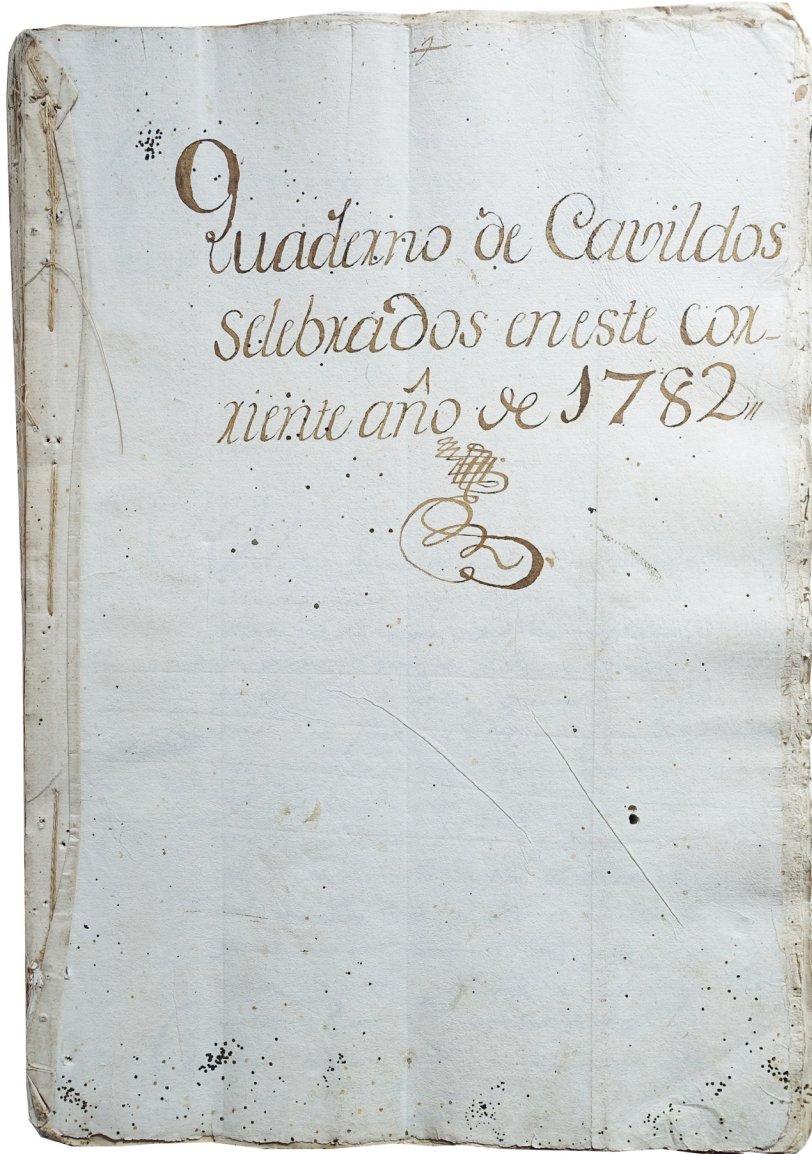 Quaderno de Cavildos
Selebrados en este cor-
riente año de 1782,,